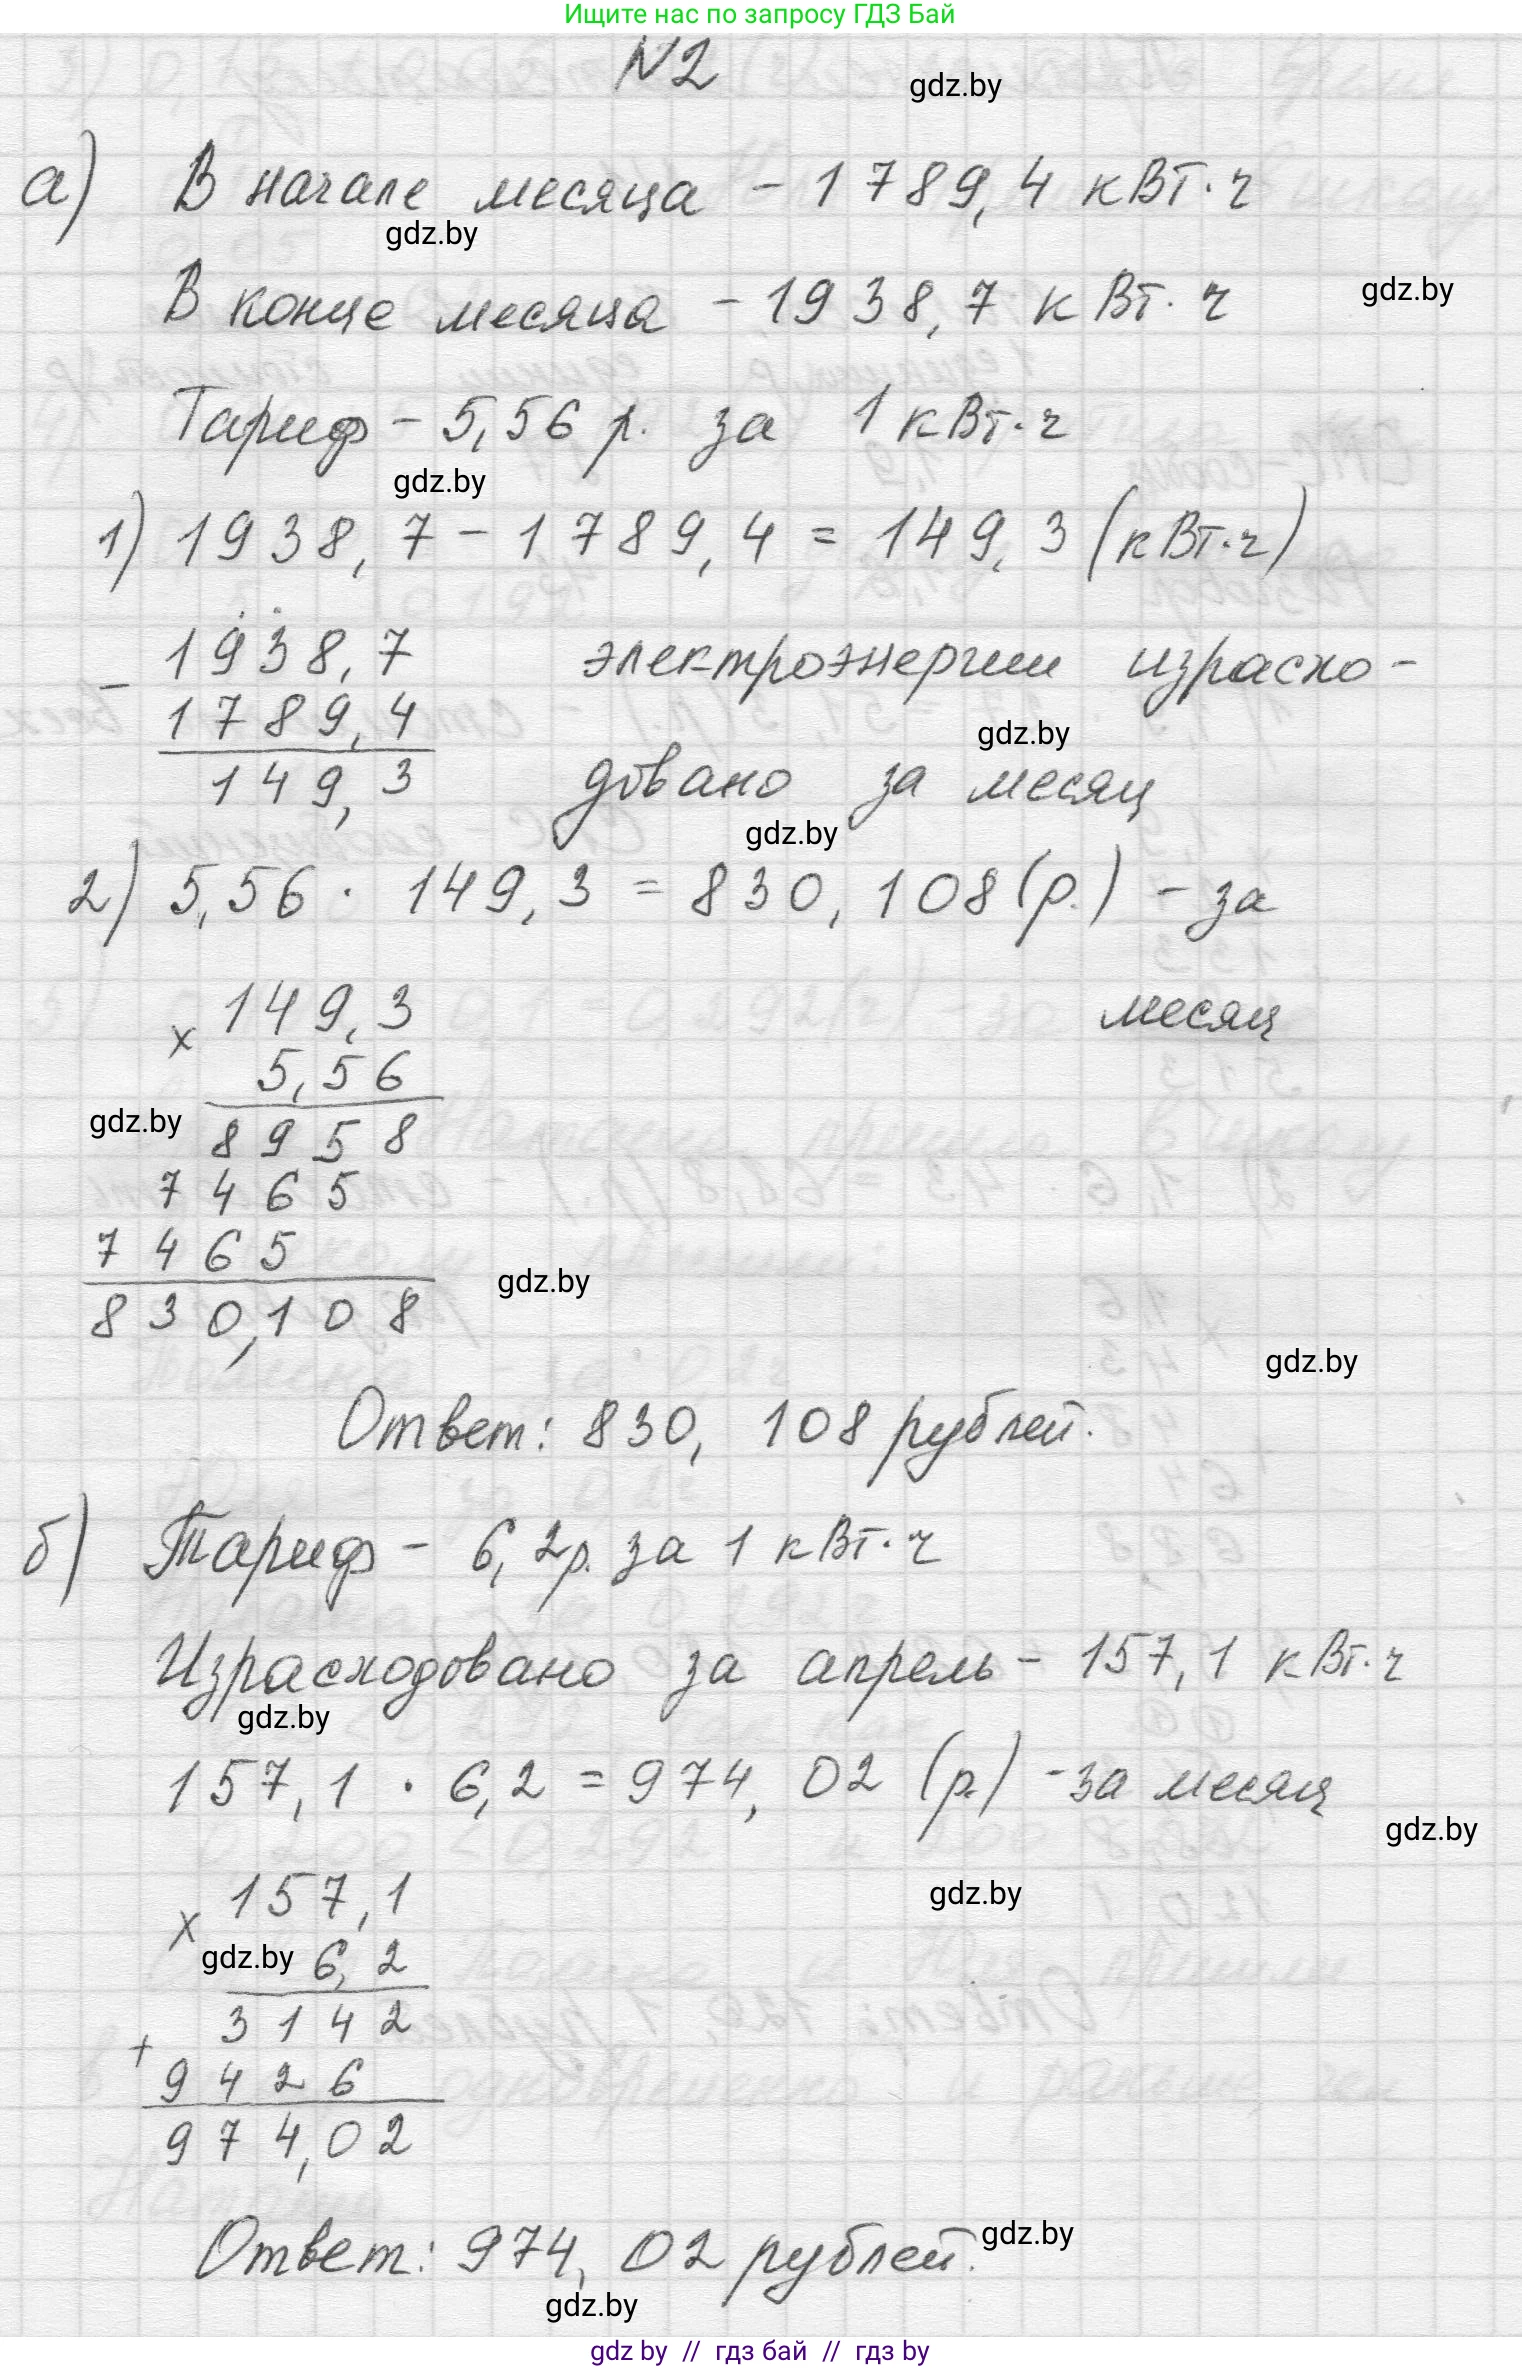 Ищите нас по запросу ГДЗ Бай
N2
gdz.by
а) В начале месяца - 1789,4 кВт·ч
gdz.by
В конце месяца - 1938,7 кВт·ч
gdz.by
Тариф - 5,56 р. за 1 кВт·ч
gdz.by
1) 1938,7 - 1789,4 = 149,3 (кВт·ч)
- 1938,7 электроэнергии израсхо-
1789,4 gdz.by
149,3 довано за месяц
gdz.by
2) 5,56 · 149,3 = 830,108 (р.) - за
× 149,3 месяц
5,56
gdz.by 8958
7465
7465
gdz.by
830,108
gdz.by
Ответ: 830,108 рублей.
б) Тариф - 6,2р. за 1 кВт·ч
Израсходовано за апрель - 157,1 кВт·ч
gdz.by
157,1 · 6,2 = 974,02 (р.) - за месяц
gdz.by
× 157,1 gdz.by
gdz.by 6,2
3142
+ 9426
974,02
Ответ: 974,02 рублей. gdz.by
gdz.by
gdz by // гдз бай // гдз by